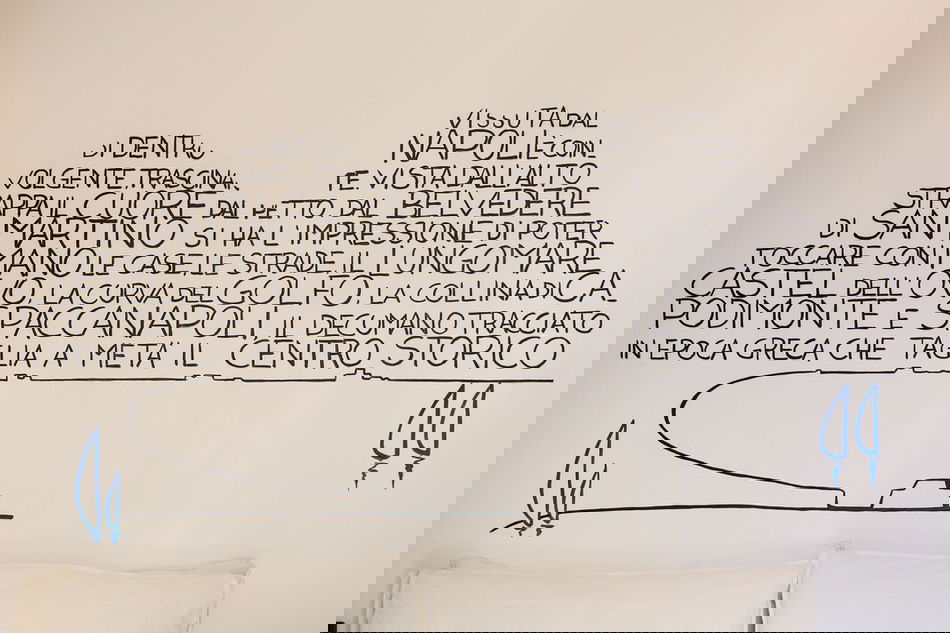 VISSUTA DAL
DI DENTRO NAPOLI È COIN
VOLGENTE, TRASCINA,
TE VISTA DALL'ALTO
STRAPPA IL CUORE DAL PETTO. DAL BELVEDERE
DI SAN MARTINO SI HA L'IMPRESSIONE DI POTER
TOCCARE CON MANO LE CASE, LE STRADE, IL LUNGOMARE,
CASTEL DELL'OVO, LA CURVA DEL GOLFO, LA COLLINA DI CA,
PODIMONTE E SPACCANAPOLI, IL DECUMANO TRACCIATO
IN EPOCA GRECA CHE TAGLIA A META' IL CENTRO STORICO